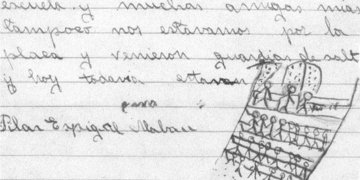 escuela y muchas amigas mias
tampoco nos estavamos por la
plaza y venieron guardias de salt
y hoy todavia estavan
para
Pilar Espigol